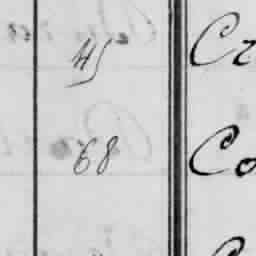 45 Cr
68 Co